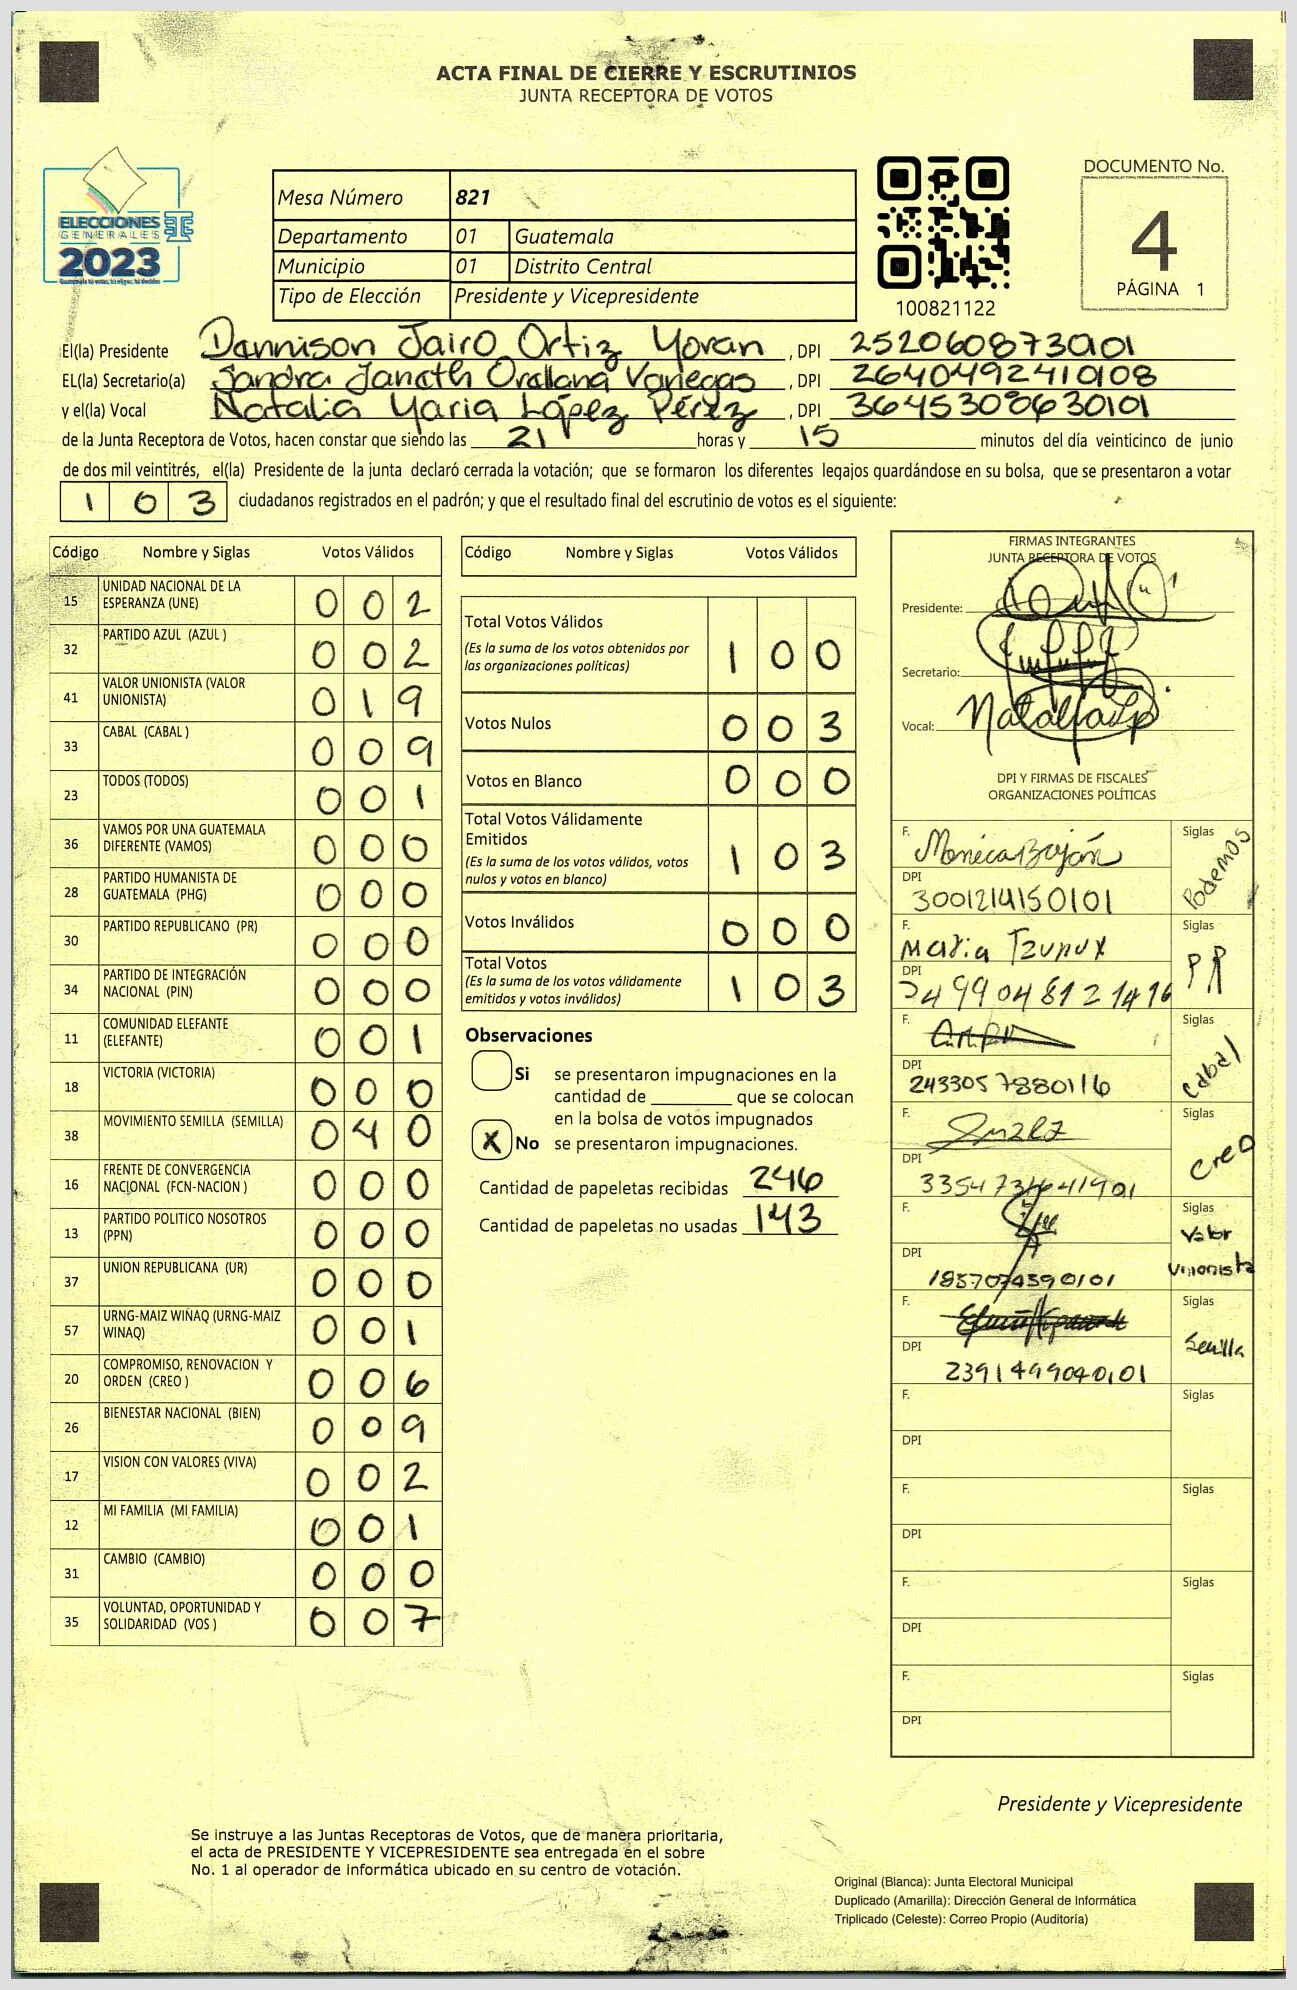 ACTA FINAL DE CIERRE Y ESCRUTINIOS
JUNTA RECEPTORA DE VOTOS
ELECCIONES
GENERALES
2023
Mesa Número 821
Departamento 01 Guatemala
Municipio 01 Distrito Central
Tipo de Elección Presidente y Vicepresidente
100821122
DOCUMENTO No.
4
PÁGINA 1
El(la) Presidente Dennison Jairo Ortiz Moran, DPI 2520608730101
EL(la) Secretario(a) Sandra Janeth Orellana Vanegas, DPI 2640492410108
y el(la) Vocal Natalia María López Pérez, DPI 3645308630101
de la Junta Receptora de Votos, hacen constar que siendo las 21 horas y 15 minutos del día veinticinco de junio
de dos mil veintitrés, el(la) Presidente de la junta declaró cerrada la votación; que se formaron los diferentes legajos guardándose en su bolsa, que se presentaron a votar
103 ciudadanos registrados en el padrón; y que el resultado final del escrutinio de votos es el siguiente:
Código Nombre y Siglas Votos Válidos
15 UNIDAD NACIONAL DE LA ESPERANZA (UNE) 0 0 2
32 PARTIDO AZUL (AZUL ) 0 0 2
41 VALOR UNIONISTA (VALOR UNIONISTA) 0 1 9
33 CABAL (CABAL ) 0 0 9
23 TODOS (TODOS) 0 0 1
36 VAMOS POR UNA GUATEMALA DIFERENTE (VAMOS) 0 0 0
28 PARTIDO HUMANISTA DE GUATEMALA (PHG) 0 0 0
30 PARTIDO REPUBLICANO (PR) 0 0 0
34 PARTIDO DE INTEGRACIÓN NACIONAL (PIN) 0 0 0
11 COMUNIDAD ELEFANTE (ELEFANTE) 0 0 1
18 VICTORIA (VICTORIA) 0 0 0
38 MOVIMIENTO SEMILLA (SEMILLA) 0 4 0
16 FRENTE DE CONVERGENCIA NACIONAL (FCN-NACION ) 0 0 0
13 PARTIDO POLITICO NOSOTROS (PPN) 0 0 0
37 UNION REPUBLICANA (UR) 0 0 0
57 URNG-MAIZ WINAQ (URNG-MAIZ WINAQ) 0 0 1
20 COMPROMISO, RENOVACION Y ORDEN (CREO ) 0 0 6
26 BIENESTAR NACIONAL (BIEN) 0 0 9
17 VISION CON VALORES (VIVA) 0 0 2
12 MI FAMILIA (MI FAMILIA) 0 0 1
31 CAMBIO (CAMBIO) 0 0 0
35 VOLUNTAD, OPORTUNIDAD Y SOLIDARIDAD (VOS ) 0 0 7
Código Nombre y Siglas Votos Válidos
Total Votos Válidos 1 0 0
(Es la suma de los votos obtenidos por
las organizaciones políticas)
Votos Nulos 0 0 3
Votos en Blanco 0 0 0
Total Votos Válidamente
Emitidos 1 0 3
(Es la suma de los votos válidos, votos
nulos y votos en blanco)
Votos Inválidos 0 0 0
Total Votos 1 0 3
(Es la suma de los votos válidamente
emitidos y votos inválidos)
Observaciones
Si se presentaron impugnaciones en la
cantidad de ________ que se colocan
en la bolsa de votos impugnados
X No se presentaron impugnaciones.
Cantidad de papeletas recibidas 246
Cantidad de papeletas no usadas 143
FIRMAS INTEGRANTES
JUNTA RECEPTORA DE VOTOS
Presidente:
Secretario:
Vocal:
DPI Y FIRMAS DE FISCALES
ORGANIZACIONES POLÍTICAS
F. Siglas Podemos
DPI 3001214150101
F. Maria Siglas PR
DPI
F. Siglas Cabal
DPI 2433057880116
F. Siglas Creo
DPI
F. Siglas Valor Unionista
DPI 1857074590101
F. Siglas Semilla
DPI 2391499040101
F. Siglas
DPI
F. Siglas
DPI
F. Siglas
DPI
F. Siglas
DPI
Presidente y Vicepresidente
Se instruye a las Juntas Receptoras de Votos, que de manera prioritaria,
el acta de PRESIDENTE Y VICEPRESIDENTE sea entregada en el sobre
No. 1 al operador de informática ubicado en su centro de votación.
Original (Blanca): Junta Electoral Municipal
Duplicado (Amarilla): Dirección General de Informática
Triplicado (Celeste): Correo Propio (Auditoría)